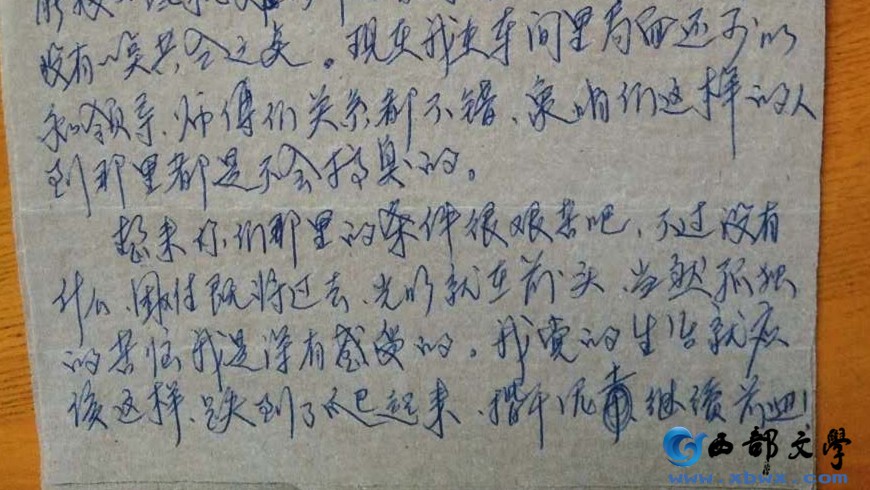 没有一点共合之处。现在我在车间里局面还可以
和领导、师傅们关系都不错、象咱们这样的人
到那里都是不会搞臭的。
想来你们那里的条件很艰苦吧、不过没有
什么、困难既将过去、光明就在前头、当然孤独
的苦恼我是深有感受的。我觉的生活就应
该这样、跌到了爬起来、擦干泥继续前进!
西部文学
www.xbwx.com